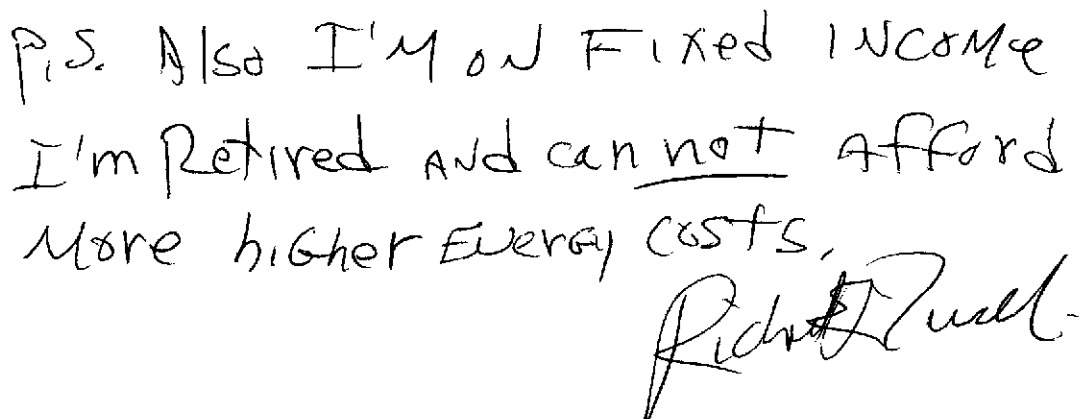 P.S. Also I'M ON FIXed INCOMe
I'm Retired ANd can not Afford
More hiGher ENerGy costs.